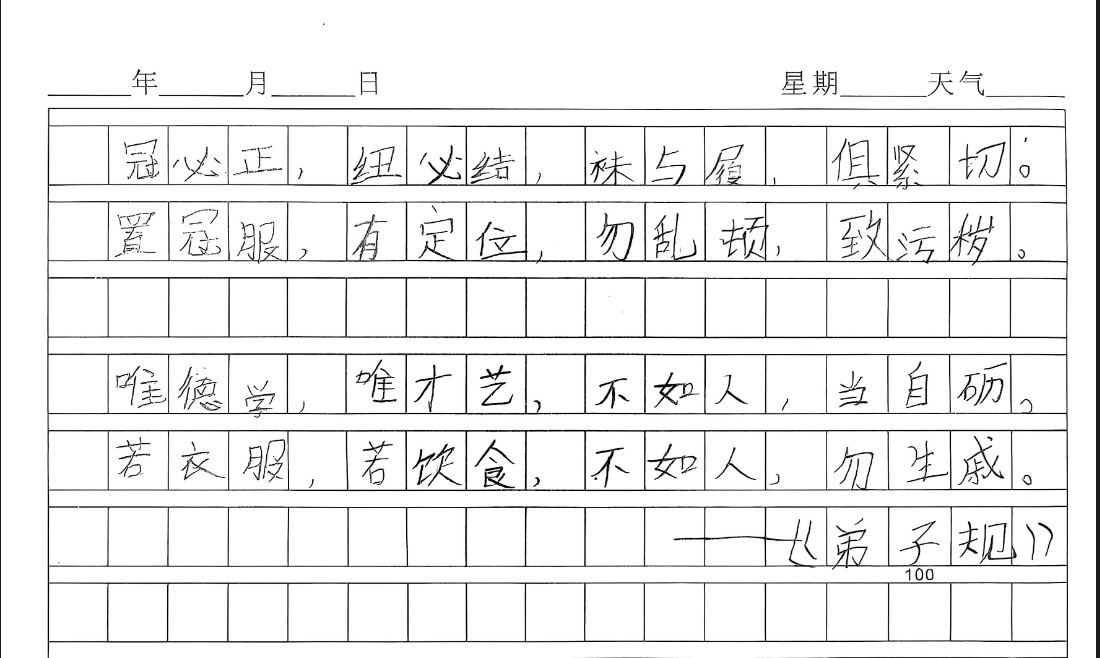 年 月 日 星期 天气
冠必正，纽必结，袜与履，俱紧切。
置冠服，有定位，勿乱顿，致污秽。
唯德学，唯才艺，不如人，当自砺。
若衣服，若饮食，不如人，勿生戚。
——《弟子规》
100